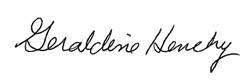 Geraldine Henchy